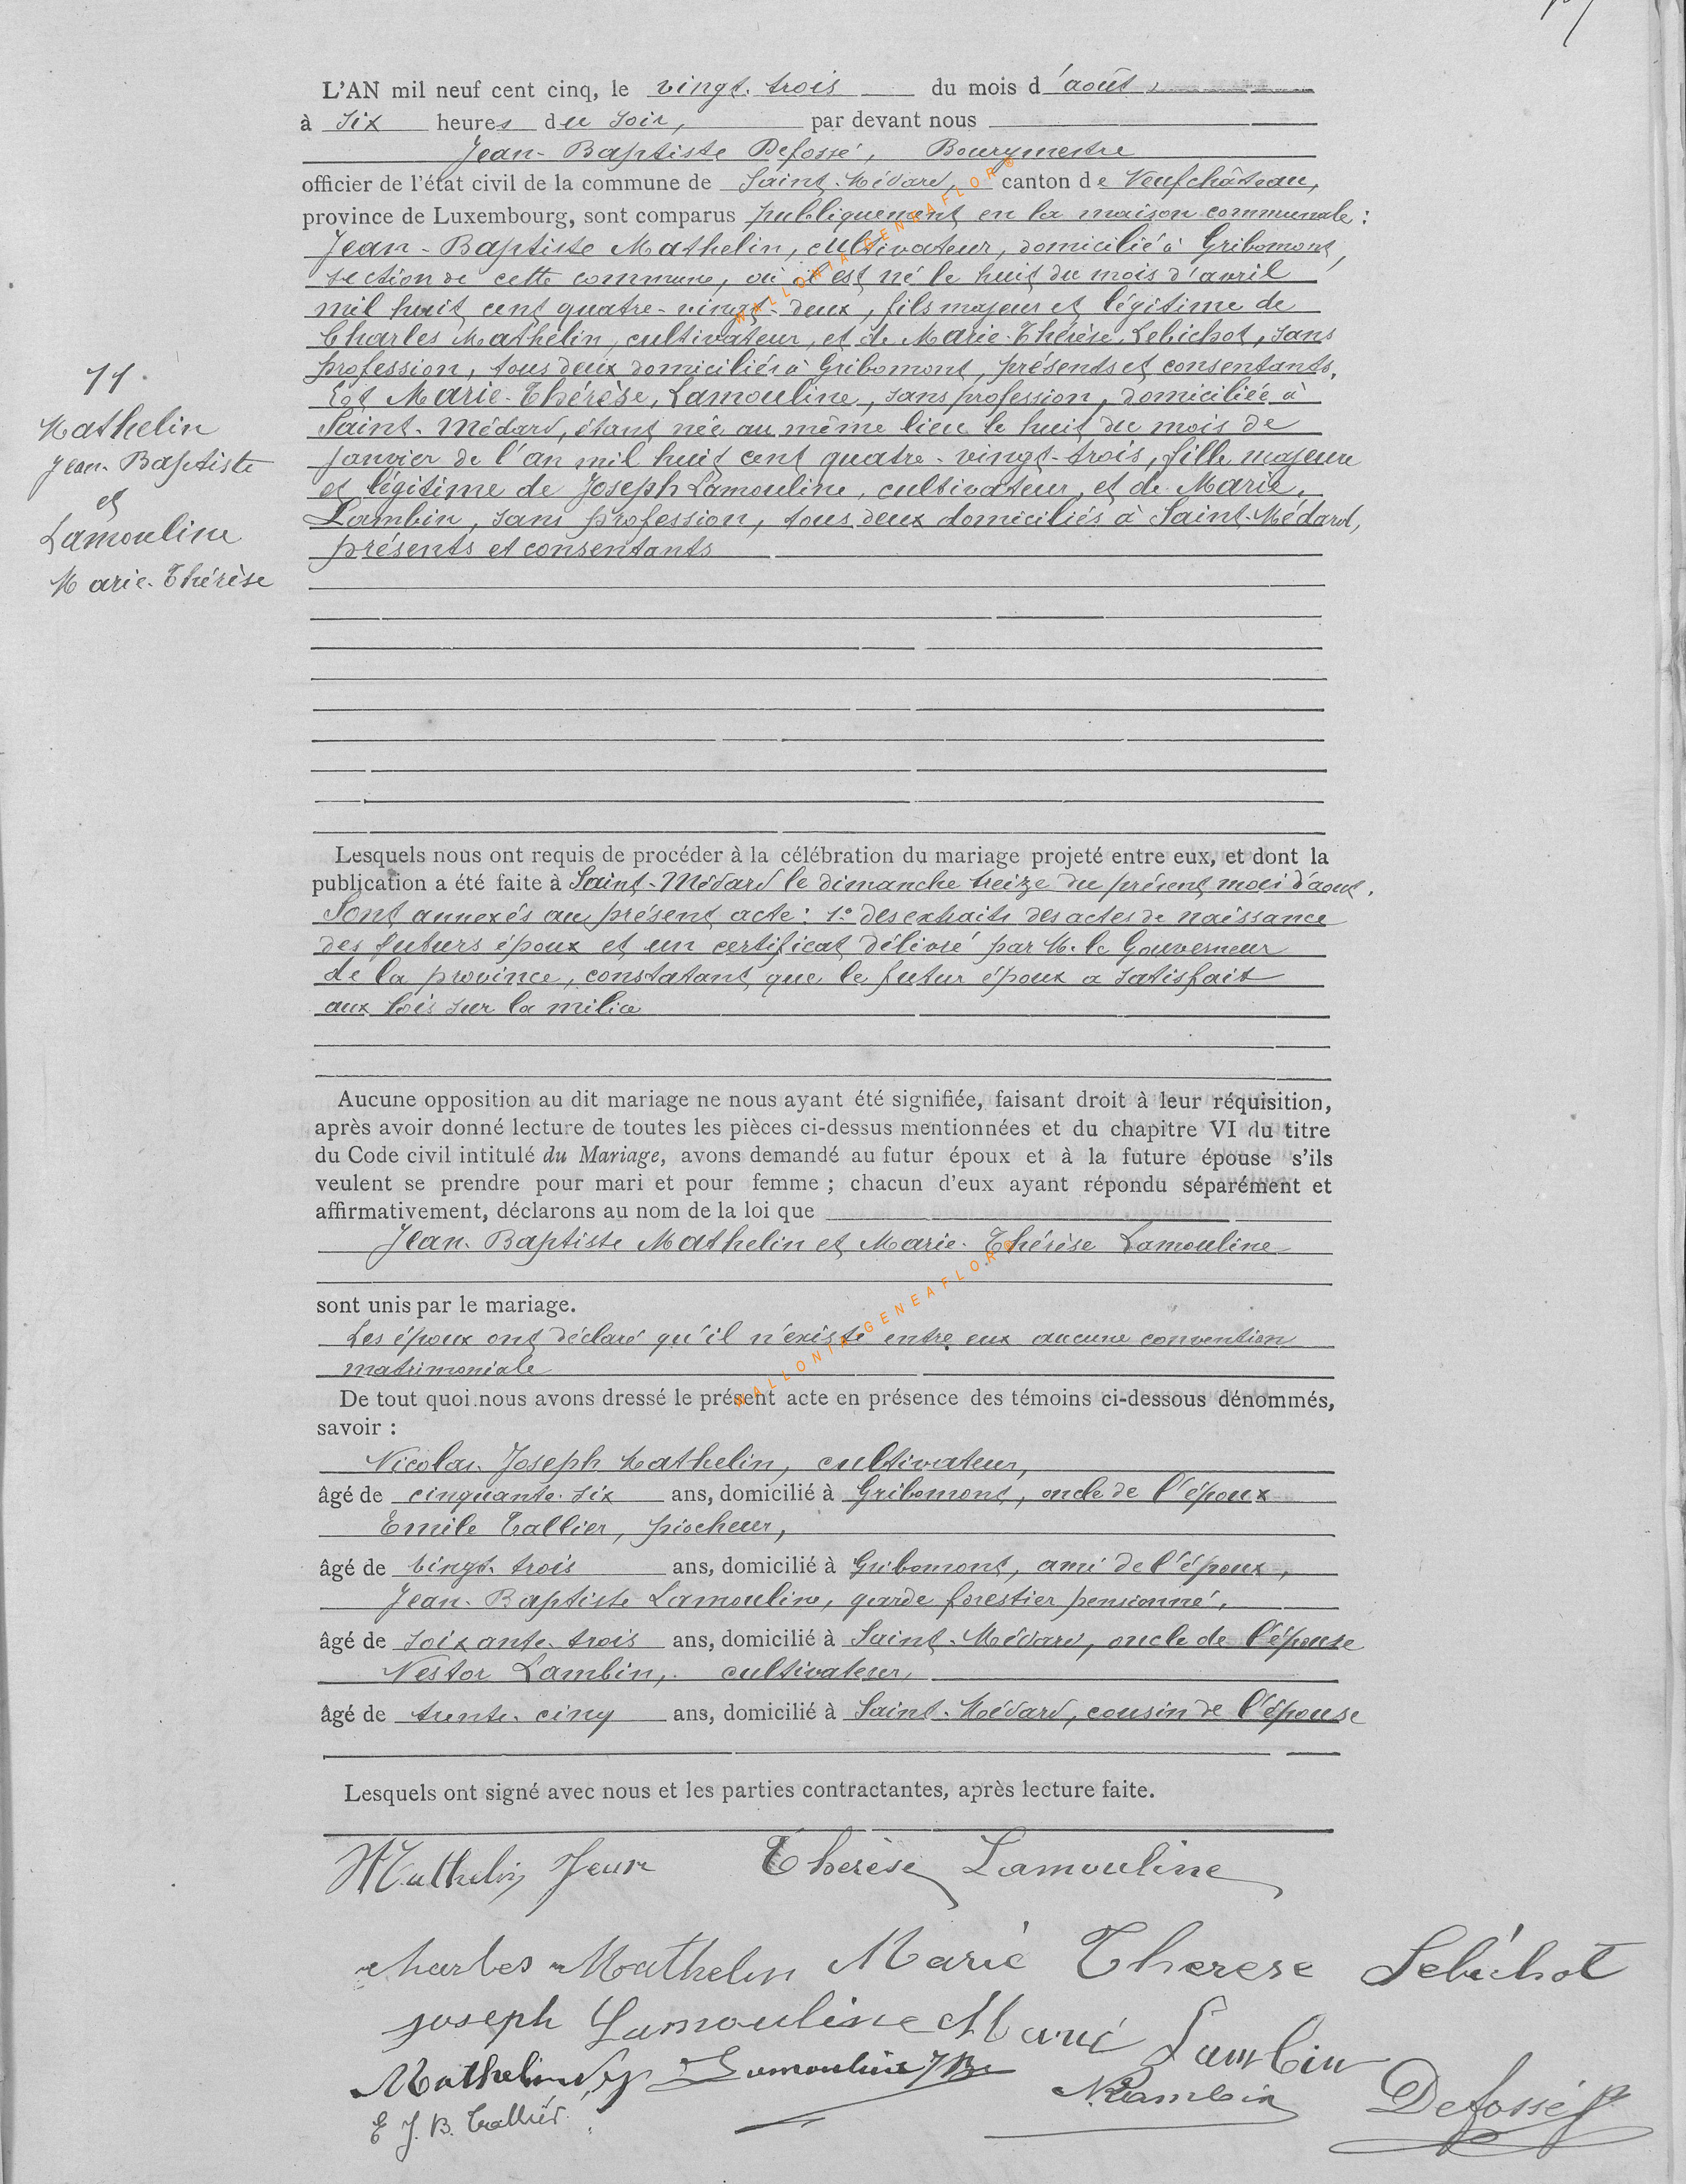 L'AN mil neuf cent cinq, le vingt-trois du mois d'août,
à six heures du soir, par devant nous
Jean-Baptiste Defossé, Bourgmestre
officier de l'état civil de la commune de Saint-Médard, canton de Neufchâteau,
province de Luxembourg, sont comparus publiquement en la maison communale :
Jean-Baptiste Mathelin, cultivateur, domicilié à Gribomont,
section de cette commune, où il est né le huit du mois d'avril
mil huit cent quatre-vingt-deux, fils majeur et légitime de
Charles Mathelin, cultivateur, et de Marie-Thérèse Lebichot, sans
profession, tous deux domiciliés à Gribomont, présents et consentants.
Et Marie-Thérèse Lamouline, sans profession, domiciliée à
Saint-Médard, étant née au même lieu le huit du mois de
janvier de l'an mil huit cent quatre-vingt-trois, fille majeure
et légitime de Joseph Lamouline, cultivateur, et de Marie
Lambin, sans profession, tous deux domiciliés à Saint-Médard,
présents et consentants
11.
Mathelin
Jean-Baptiste
et
Lamouline
Marie-Thérèse
Lesquels nous ont requis de procéder à la célébration du mariage projeté entre eux, et dont la
publication a été faite à Saint-Médard le dimanche treize du présent mois d'août.
Sont annexés au présent acte : 1° des extraits des actes de naissance
des futurs époux et un certificat délivré par M. le Gouverneur
de la province, constatant que le futur époux a satisfait
aux lois sur la milice
Aucune opposition au dit mariage ne nous ayant été signifiée, faisant droit à leur réquisition,
après avoir donné lecture de toutes les pièces ci-dessus mentionnées et du chapitre VI du titre
du Code civil intitulé du Mariage, avons demandé au futur époux et à la future épouse s'ils
veulent se prendre pour mari et pour femme ; chacun d'eux ayant répondu séparément et
affirmativement, déclarons au nom de la loi que
Jean-Baptiste Mathelin et Marie-Thérèse Lamouline
sont unis par le mariage.
Les époux ont déclaré qu'il n'existe entre eux aucune convention
matrimoniale
De tout quoi nous avons dressé le présent acte en présence des témoins ci-dessous dénommés,
savoir :
Nicolas-Joseph Mathelin, cultivateur,
âgé de cinquante-six ans, domicilié à Gribomont, oncle de l'époux
Emile Tallier, piocheur,
âgé de vingt-trois ans, domicilié à Gribomont, ami de l'époux,
Jean-Baptiste Lamouline, garde forestier pensionné,
âgé de soixante-trois ans, domicilié à Saint-Médard, oncle de l'épouse
Nestor Lambin, cultivateur,
âgé de trente-cinq ans, domicilié à Saint-Médard, cousin de l'épouse
Lesquels ont signé avec nous et les parties contractantes, après lecture faite.
Mathelin Jean Thérèse Lamouline
charles Mathelin Marie Therese Lebichot
joseph Lamouline Marie Lambin
Mathelin Lamouline JB N Lambin Defossé
E J. B. Tallier
WALLONIA GENEAFLOR
WALLONIA GENEAFLOR